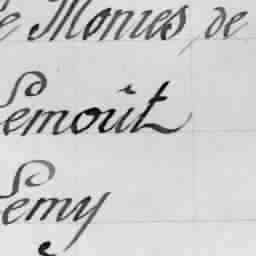 Le Monies de
Lemoût
Lemy